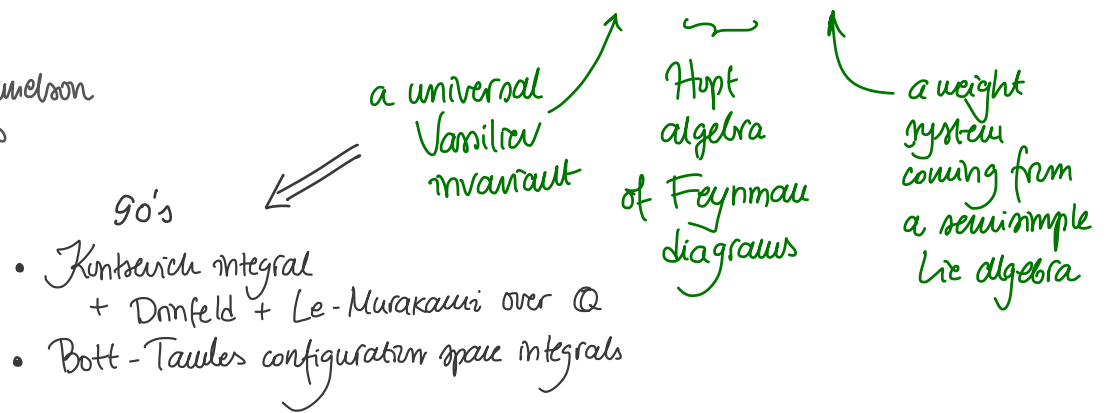 a universal
Vassiliev
invariant
Hopf
algebra
of Feynman
diagrams
a weight
system
coming from
a semisimple
Lie algebra
90's
• Kontsevich integral
+ Drinfeld + Le-Murakami over Q
• Bott-Taubes configuration space integrals